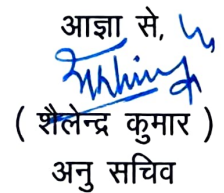 आज्ञा से,
( शैलेन्द्र कुमार )
अनु सचिव